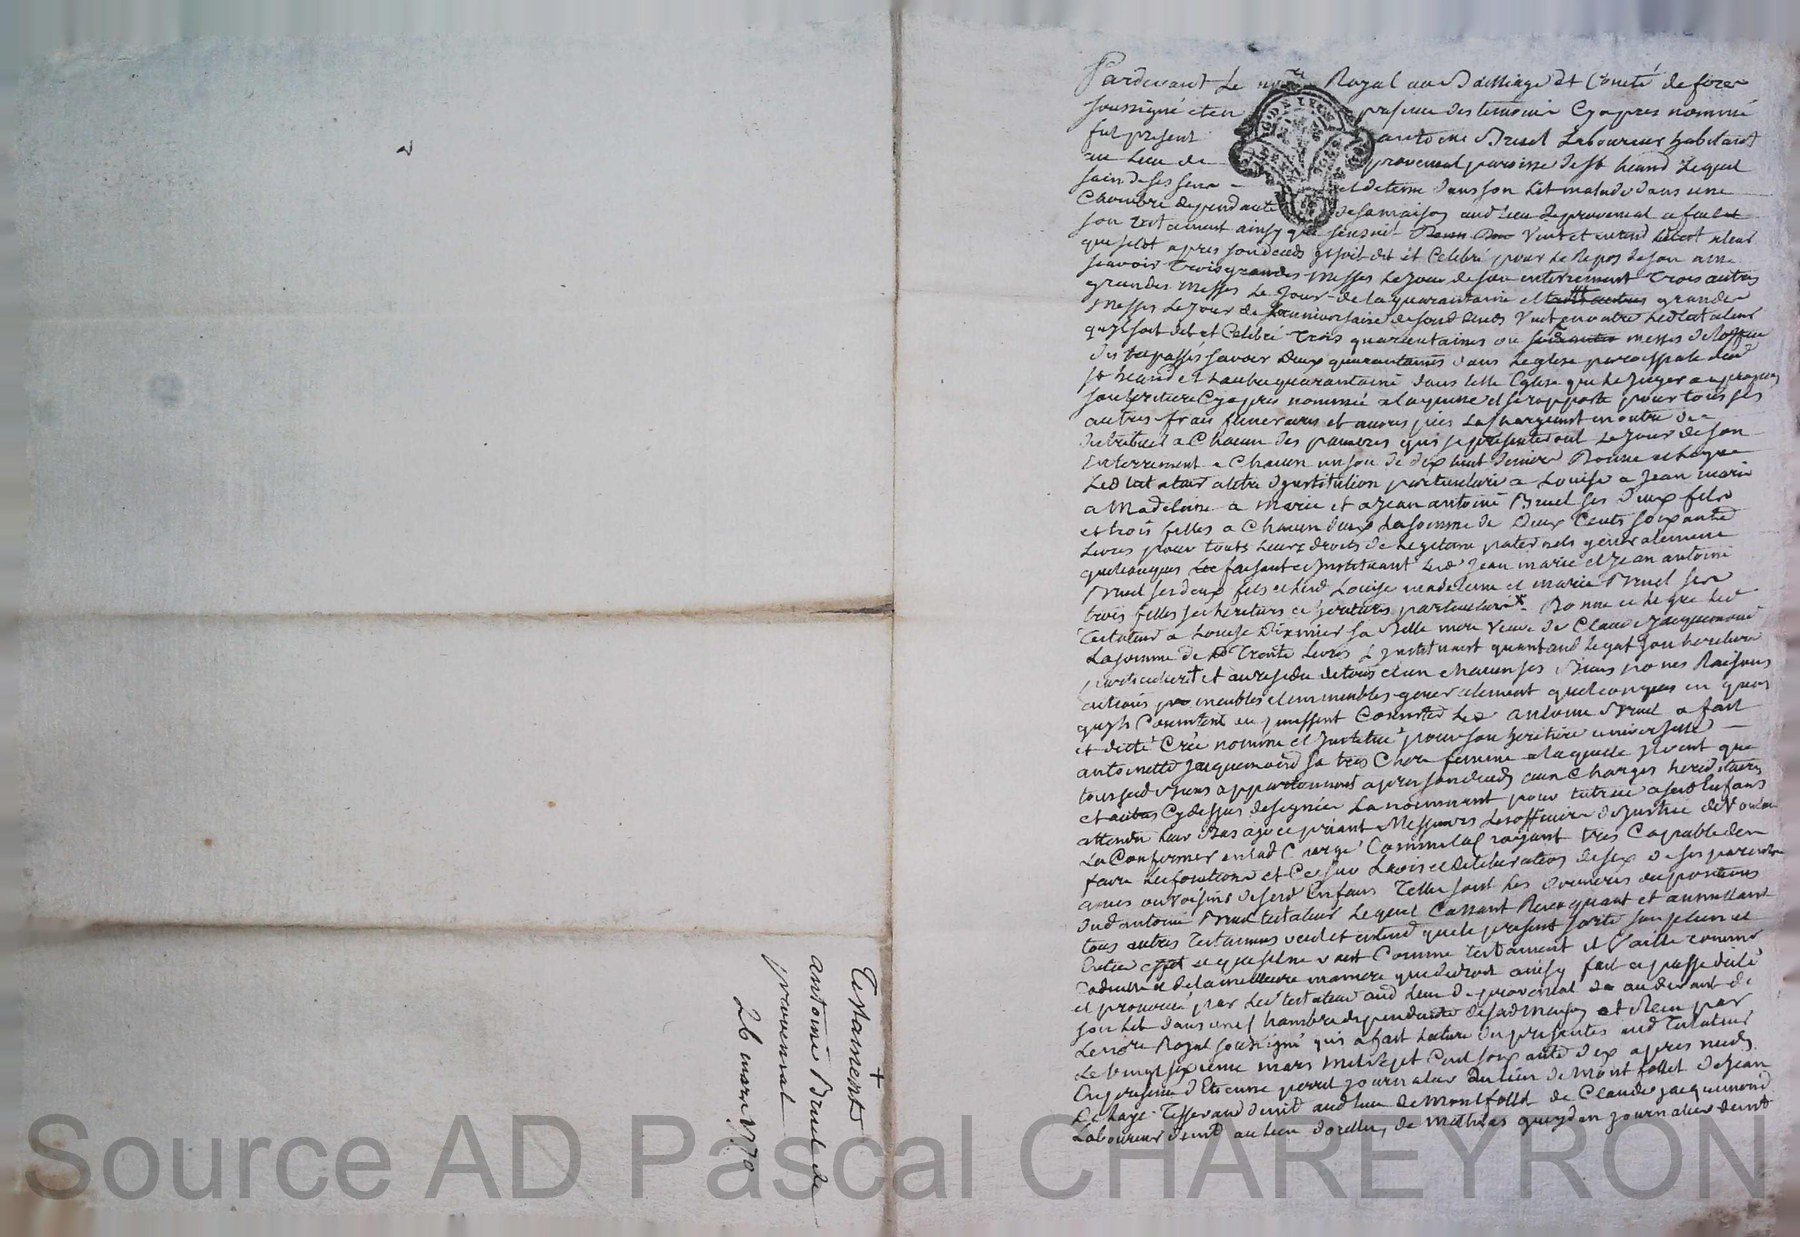 Pardevant Le no.re Royal au Bailliage et Comté de forez
soussigné et en presence des temoins Cyapres nommé
fut present antoine Bruel Laboureur habitant
au Lieu de provenval paroisse de st heand Lequel
sain de ses sens et detenu dans son Lit malade dans une
Chambre dependante de sa maison aud lieu de provenval a fait
son testament ainsy que sensuit veut et entend
que sitot apres son deceds il soit dit et Celebré pour le Repos de son ame
scavoir trois grandes messes Le Jour de son enterrement trois autres
grandes messes Le Jour de la quarantaine et grandes
messes Le Jour de de sond deceds veut en outre Led testateur
qu'il soit dit et Celebré trois quarantaines ou messes de
des trepassés savoir deux quarantaines dans Leglise paroissiale dud
st heand et Lautre quarantaine dans telle Eglise que le Jugera a propos
son heritiere Cyapres nommée a laquelle il se rapporte pour tous ses
autres frais funeraires et œuvres pies La chargeant en outre de
distribuer a Chacun des pauvres qui se presenteront Le Jour de son
Enterrement a Chacun un sou de dix huit deniers Donne et legue
Led testateur a titre dinstitution particuliere a Louise a Jean marie
a Madeleine a marie et a Jean antoine Bruel ses deux fils
et trois filles a Chacun deux La somme de Deux Cents soixante
Livres pour touts Leurs droits de Legitime paternels generalement
quelconques faisant et Instituant Lesd Jean marie et Jean antoine
Bruel ses deux fils et lesd Louise madeleine et marie Bruel ses
trois filles ses heritiers et heritieres particuliers x Donne et legue led
testateur a Louise sa Belle mere veuve de Claude Jacquemond
La somme de Trente Livres L'instituant quant aud Legat son heritiere
particuliere et au residu de tous et un chacun ses Biens noms Raisons
actions meubles et immeubles generalement quelconques en quoy
qu'ils Consistent ou puissent Consister Led antoine Bruel a fait
et dicté Créé nommé et Institué pour son heritiere universelle
antoinette Jacquemond sa tres Chere femme a laquelle il veut que
tous sesd Biens appartiennent apres son deceds aux Charges hereditaires
et autres Cydessus designées La nommant pour tutrice a sesd Enfans
attendu leur Bas age et priant Messieurs Les officiers de Justice de vouloir
La Confirmer en lad Charge Comme la croyant tres Capable den
faire Les fonctions et Ce sur Lavis et deliberation de six de ses parents
amis ou voisins de sesd Enfans Telles sont Les dernieres dispositions
dud antoine Bruel testateur Lequel Cassant Revoquant et annullant
tous autres testamens veut et entend que le present sorte son plein et
Entier effet et que sil ne vaut Comme testament il vaille comme
Codicille et de la meilleure maniere que de droit ainsy fait et passé dicté
et prononcé par Led testateur aud Lieu de provenval au devant de
son Lit dans une Chambre dependante de sad maison et Recu par
Le no.re Royal soussigné qui a fait Lecture des presentes aud testateur
Le vingt sixieme mars mil sept Cent soixante dix apres midy
En presence d'Etienne perret Journalier au Lieu de Montfollet de Jean
tisserand demt aud Lieu de Montfollet de Claude Jacquemond
Laboureur demt au Lieu de mathias Journalier demt
Testament
antoine Bruel de
provenval
26 mars 1770
Source AD Pascal CHAREYRON